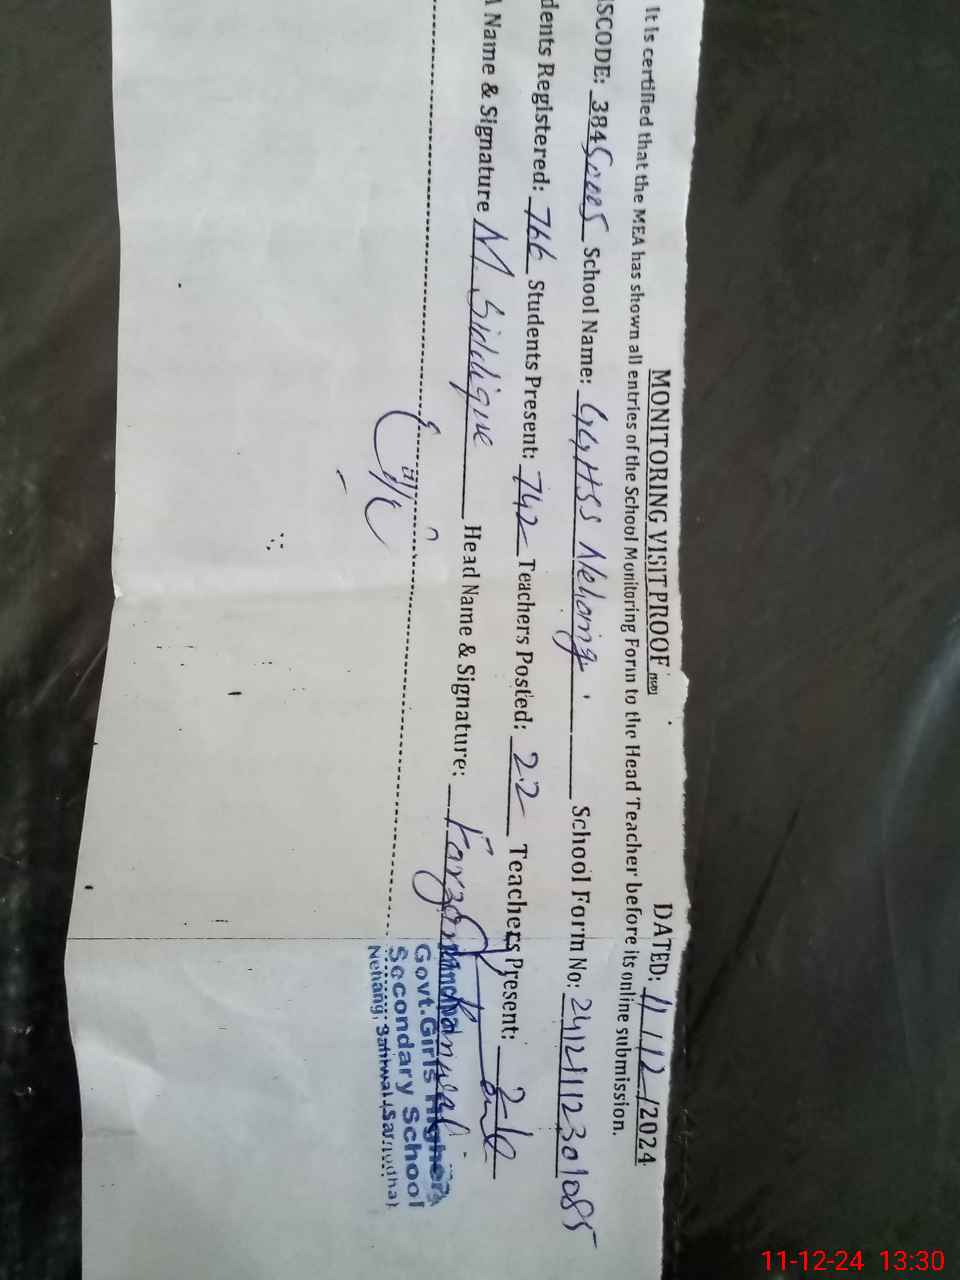 MONITORING VISIT PROOF DATED: 11/12/2024
It is certified that the MEA has shown all entries of the School Monitoring Form to the Head Teacher before its online submission.
ISCODE: 38450005 School Name: GGHSS Nehang. School Form No: 24121112301085
dents Registered: 766 Students Present: 742 Teachers Posted: 22 Teachers Present:
A Name & Signature M. Siddique Head Name & Signature:
Govt. Girls Higher
Secondary School
Nehang, Sahiwal, Sargodha
11-12-24 13:30